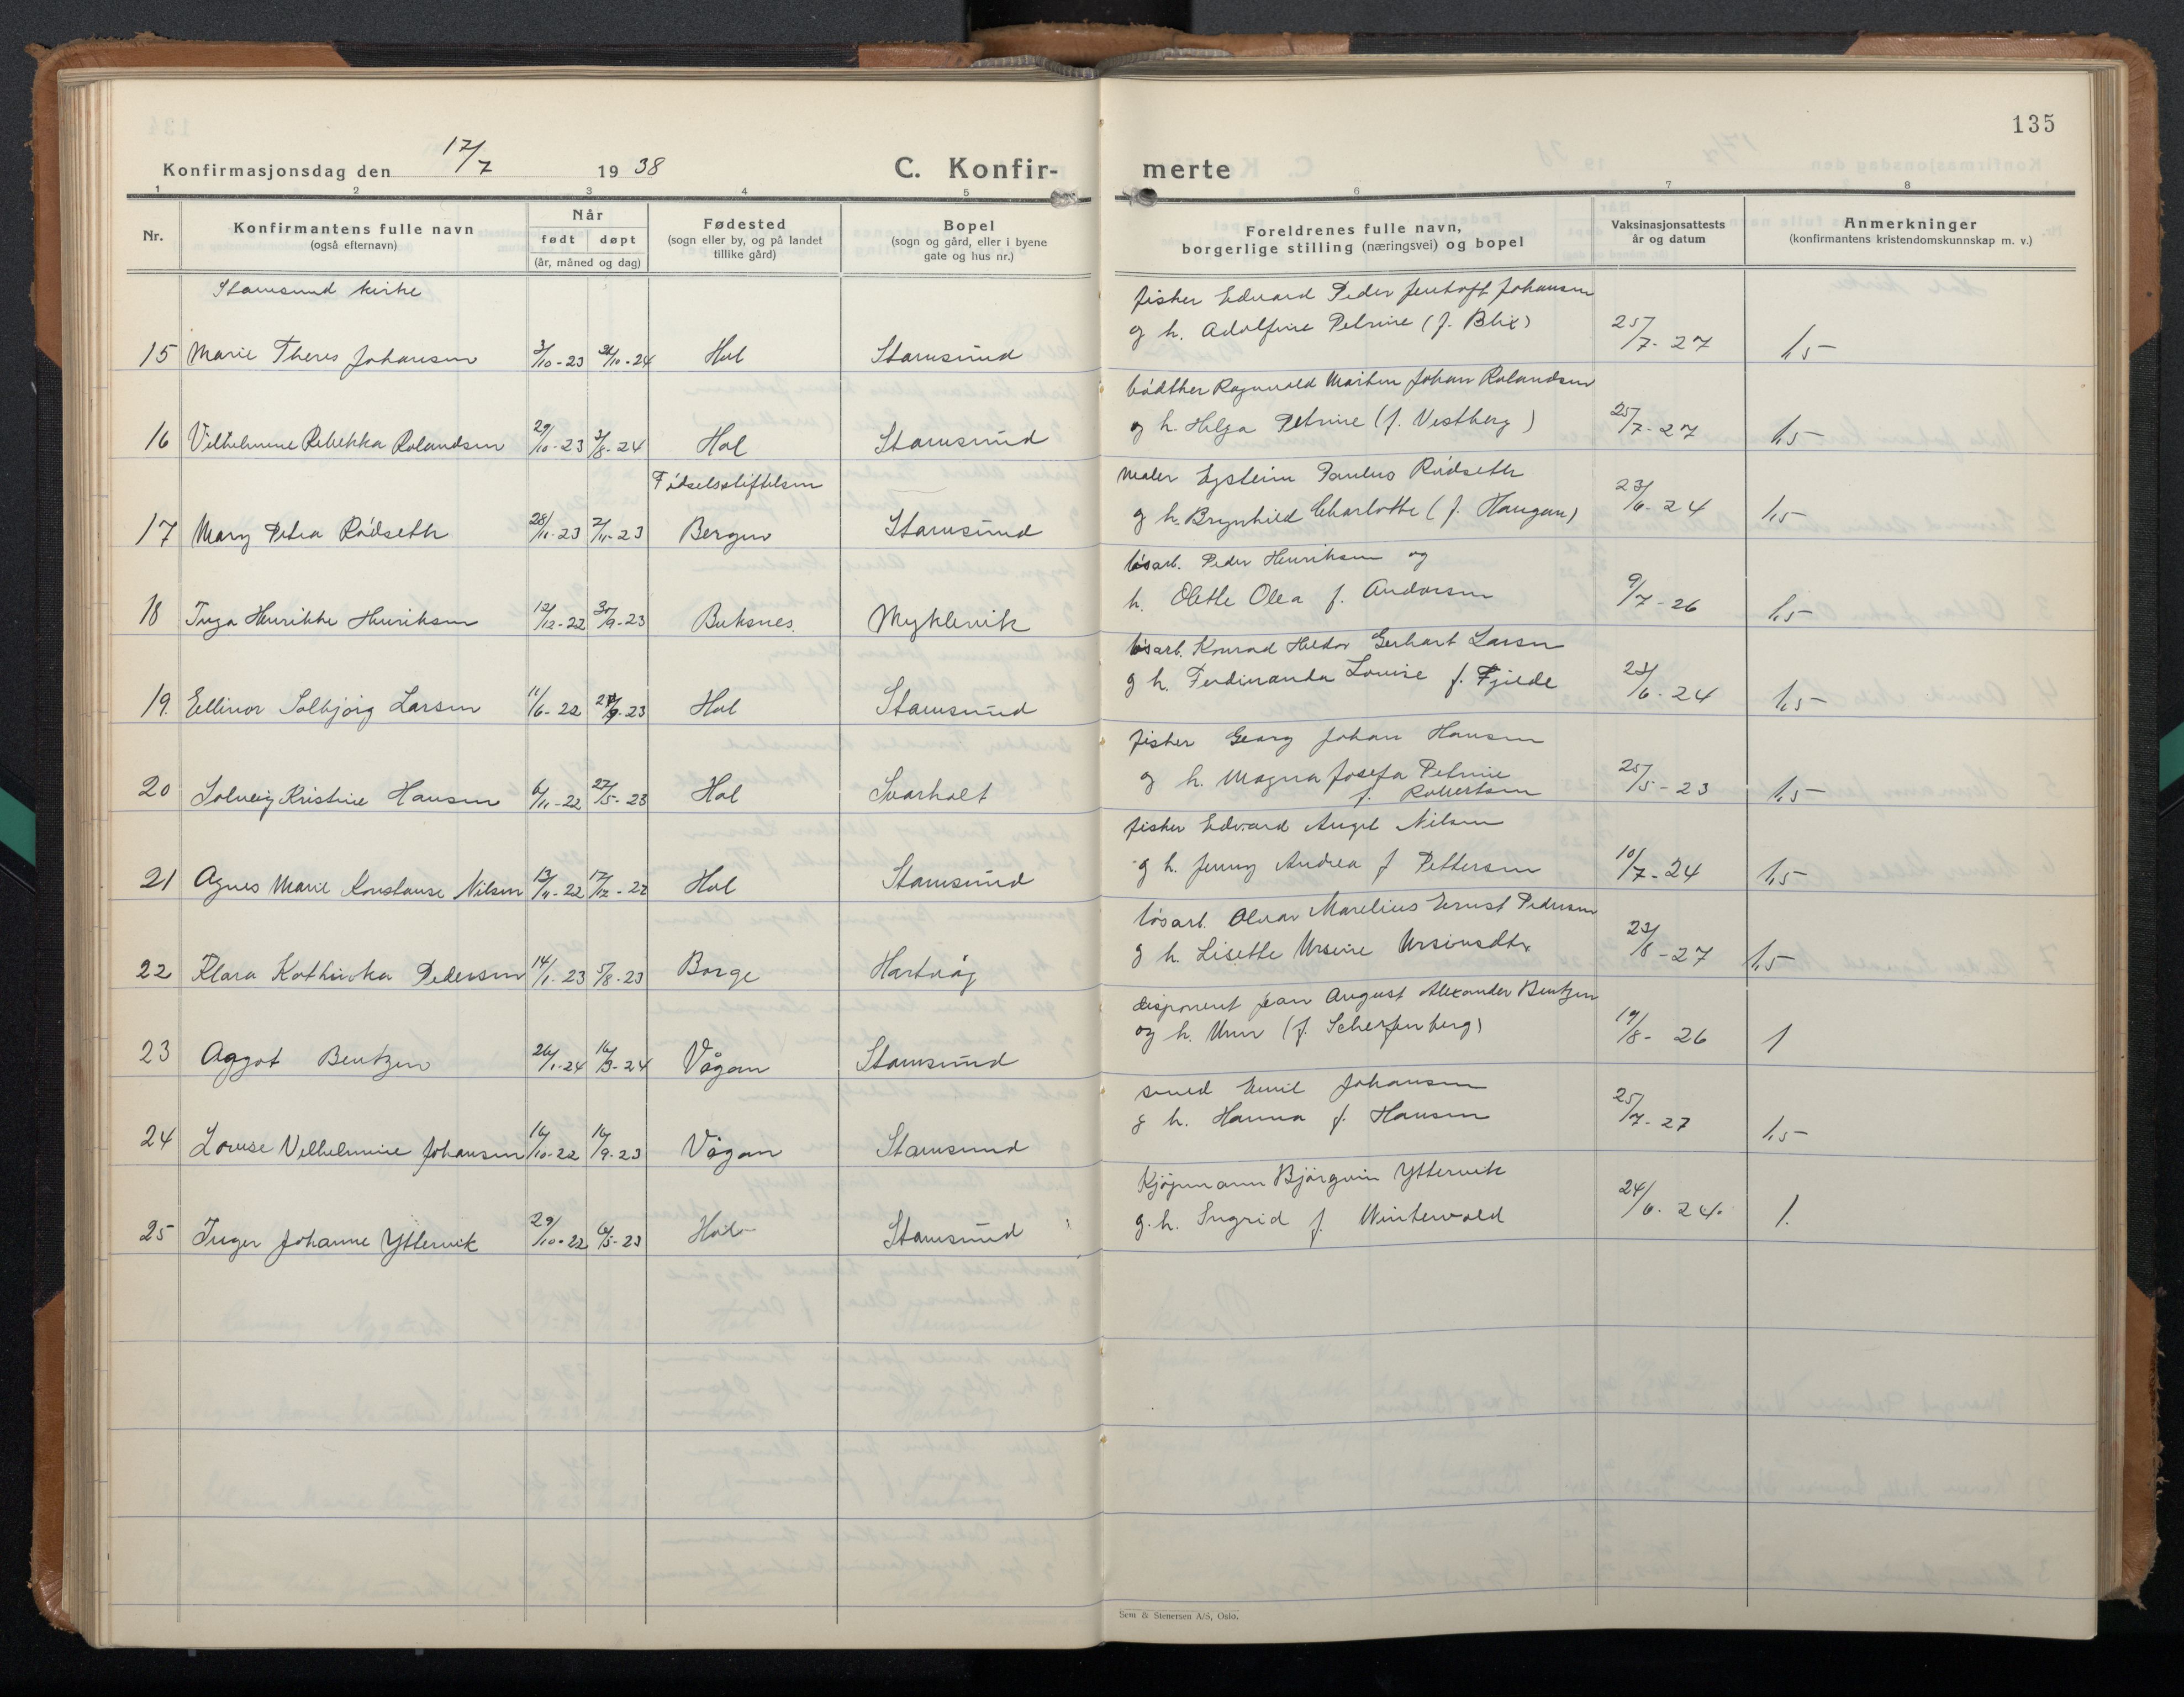 135
Konfirmasjonsdag den 17/7 1938
C. Konfir-
merte
1 2 3 4 5 6 7 8
Nr.
Konfirmantens fulle navn
(også efternavn)
Når
født døpt
(år, måned og dag)
Fødested
(sogn eller by, og på landet
tillike gård)
Bopel
(sogn og gård, eller i byene
gate og hus nr.)
Foreldrenes fulle navn,
borgerlige stilling (næringsvei) og bopel
Vaksinasjonsattests
år og datum
Anmerkninger
(konfirmantens kristendomskunnskap m. v.)
Stamsund kirke
fisker Edvard Peder Jentoft Johansen
og h. Adolfine Petrine (f. Blix)
15 Marie Theres Johansen 3/10-23 /10-24 Hol Stamsund 25/7-27 1,5
bådther Ragnvald Martin Johan Rolandsen
og h. Helga Petrine (f. Vestberg)
16 Vilhelmine Rebekka Rolandsen 29/10-23 3/8-24 Hol Stamsund 25/7-27 1,5
Fødselsstiftelsen
maler Eystein Paulus Rødseth
og h. Brynhild Charlotte (f. Haugan)
17 Mary Petra Rødseth 28/11-23 2/11-23 Bergen Stamsund 23/6-24 1,5
løsarb. Peder Henriksen og
h. Olette Olea f. Andorsen
18 Inga Henrikke Henriksen 12/12-22 30/9-23 Buksnes Myklevik 9/7-26 1,5
løsarb. Konrad Hildor Gerhart Larsen
g h. Ferdinanda Lovise f. Fjelde
19. Ellinor Solbjörg Larsen 11/6-22 /9-23 Hol Stamsund 23/6-24 1,5
fisker Georg Johan Hansen
og h. Magna Josefa Petrine
f. Robertsen
20 Solveig Kristine Hansen 6/11-22 27/5-23 Hol Svarholt 25/5-23 1,5
fisker Edvard Angel Nilsen
g h. Jenny Andrea f Pettersen
21 Agnes Marie Konstanse Nilsen 13/11-22 17/12-22 Hol Stamsund 10/7-24 1,5
løsarb. Olvar Marelius Ernst Pedersen
g h. Lisette Ursine Ursinsdtr
22 Klara Kathinka Pedersen 14/1-23 5/8-23 Borge Hartvåg 23/8-27 1,5
disponent Jean August Alexander Bentzen
og h. Unn (f. Scherfenberg)
23 Aggot Bentzen 26/1-24 16/3-24 Vågan Stamsund 19/8-26 1
smed Emil Johansen
g h. Hanna f. Hansen
24 Lovise Vilhelmine Johansen 16/10-22 16/9-23 Vågan Stamsund 25/7-27 1,5
Kjøpmann Bjørgvin Yttervik
g. h. Ingrid f. Wintervold
25 Inger Johanne Yttervik 29/10-22 6/5-23 Hol Stamsund 24/6-24. 1.
Sem & Stenersen A/S, Oslo.